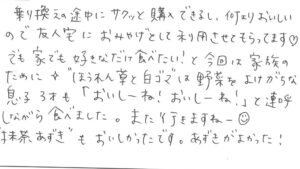 乗り換えの途中にサクッと購入できるし、何よりおいしい
ので友人宅におみやげとして利用させてもらってます♡
でも家でも好きなだけ食べたい！と今回は家族の
ために✧ “ほうれん草と白ゴマ”は野菜をよけがちな
息子3才も「おいしーね！おいしーね！」と連呼
しながら食べました。また行きますねー☺
“抹茶あずき”もおいしかったです。あずきがよかった！